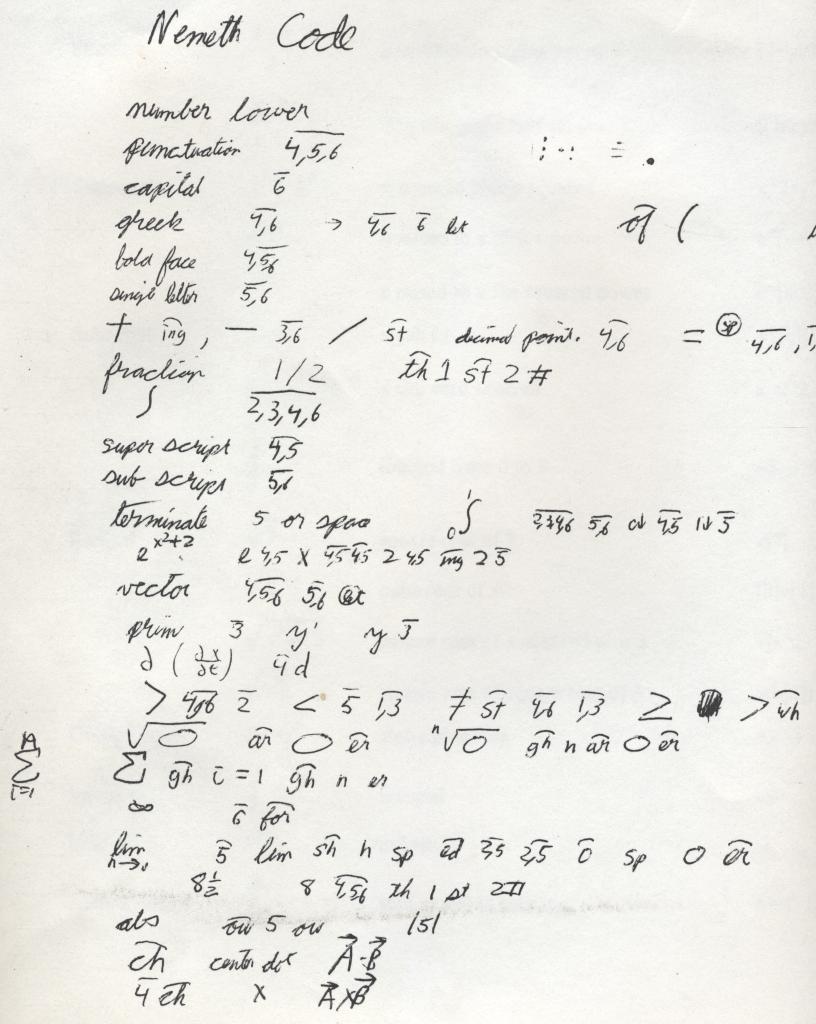 Nemeth Code
number lower
punctuation 4,5,6
capital 6
greek 4,6 → 4,6 6 let of (
bold face 4,5,6
single letter 5,6
+ ing, — 3,6 / st decimal point. 4,6 = sp 4,6, 1,
fraction 1/2 th 1 st 2 #
∫ 2,3,4,6
super script 4,5
sub script 5,6
terminate 5 or space 0∫1 2,3,4,6 5,6 4,5 5
e^x²+2 e 4,5 x 4,5 4,5 2 4,5 ing 2 5
vector 4,5,6 5,6
prim 3 y' y 3
∂ (∂x/∂t) 4 d
> 4,6 2 < 5 1,3 ≠ st 4,6 1,3 ≥ > wh
√0 ar 0 er n√0 gh n ar 0 er
n Σ i=1 Σ gh i = 1 gh n er
∞ 6 for
lim n→ 5 lim sh n sp ed 3,5 2,5 o sp 0 er
8 1/2 8 4,5,6 th 1 st 2 #
abs ow 5 ow |5|
ch center dot A·B
4 ch x A×B